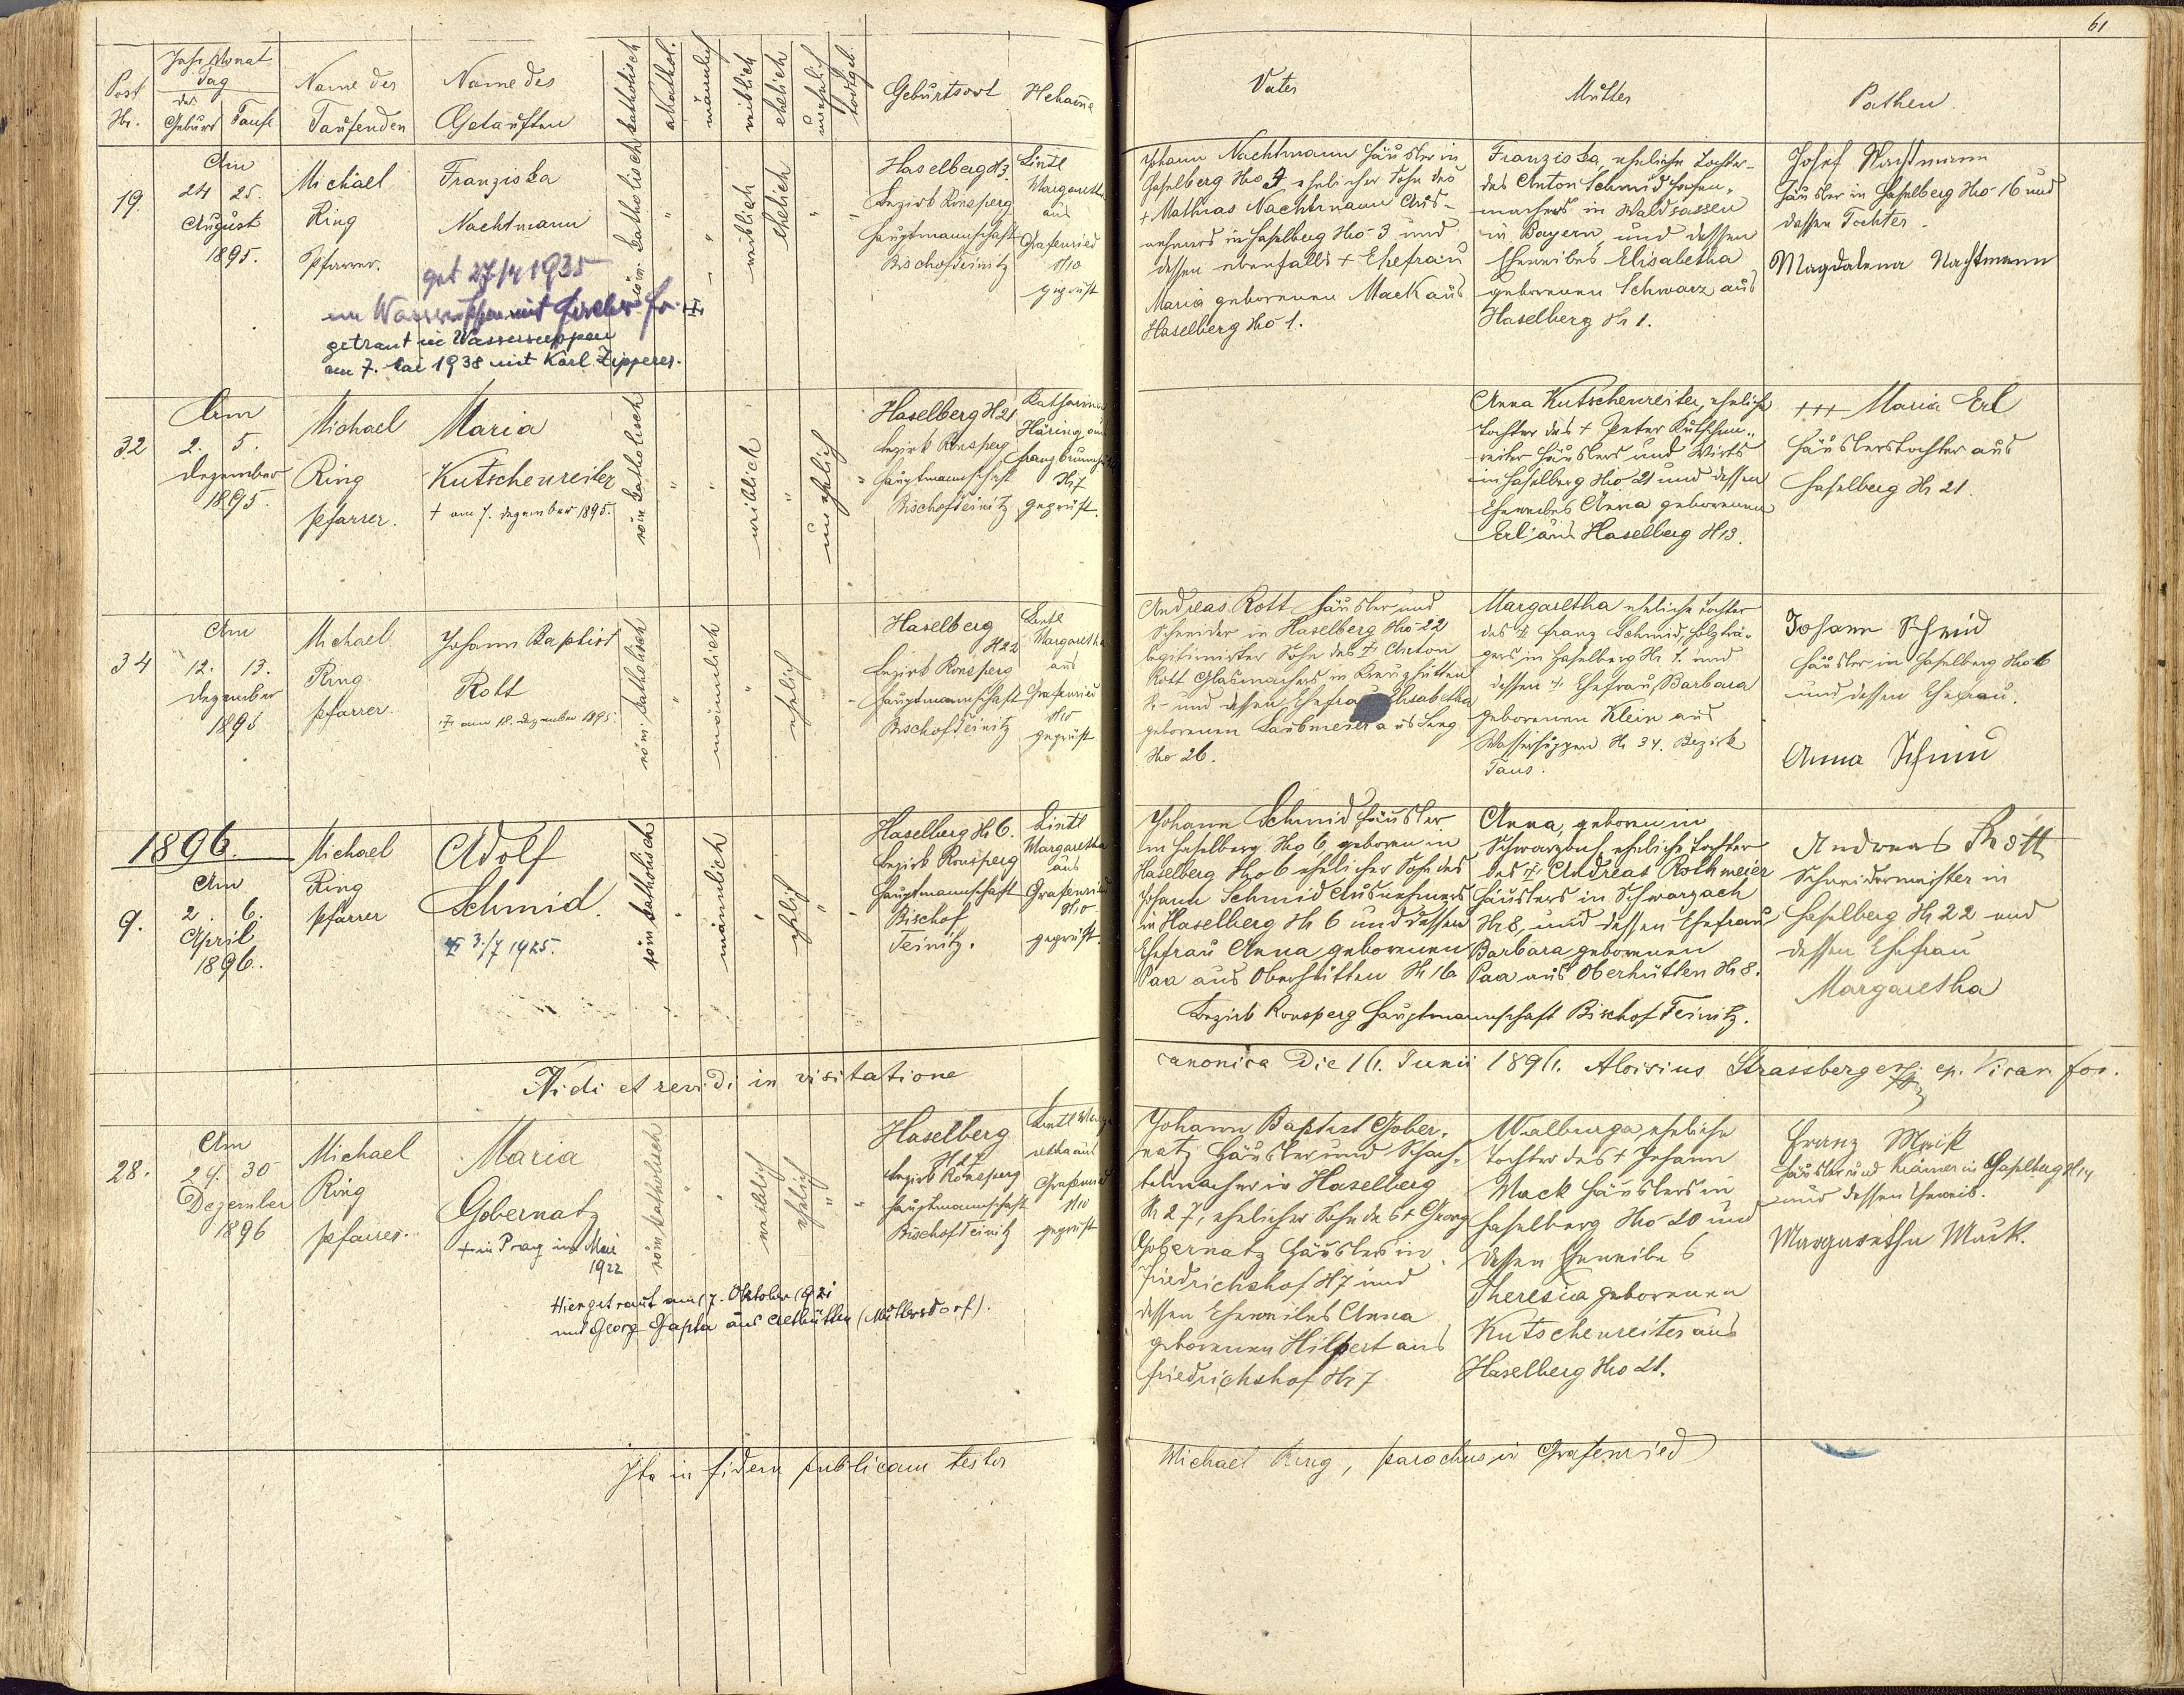 61
Post Nr.
Jahr Monat Tag
der
Geburt Taufe
Name des Taufenden
Name des Getauften
katholisch
akathol.
männlich
weiblich
ehelich
unehelich
todtgeb.
Geburtsort
Hebame
Vater
Mutter
Pathen.
19.
Am
24 25.
August
1895.
Michael
Ring
Pfarrer.
Franziska
Nachtmann
get 27/4 1935
getraut in Wassersuppen
am 7. Mai 1938 mit Karl Zipperer.
röm. katholisch
weiblich
ehelich
Haselberg N3.
Bezirk Ronsperg
Hauptmannschaft
Bischofteinitz
Lintl
Margaretha
aus
Grafenried
No
geprüft
Johann Nachtmann Häusler in
Haselberg Nro 3 ehelicher Sohn des
+ Mathias Nachtmann Aus-
nehmers in Haselberg Nro 3 und
dessen ebenfalls + Ehefrau
Maria geborenen Mack aus
Haselberg Nro 1.
Franziska, eheliche Tochter
des Anton Schmid
machers in Waldsassen
in Bayern und dessen
Eheweibes Elisabetha
geborenen Schwarz aus
Haselberg Nr 1.
Josef Nachtmann
Häusler in Haselberg Nro 16 und
dessen Tochter
Magdalena Nachtmann
32
Am
2. 5.
Dezember
1895.
Michael
Ring
Pfarrer.
Maria
Kutschenreiter
+ am 7. Dezember 1895.
röm katholisch
weiblich
unehelich
Haselberg N21
Bezirk Ronsperg
Hauptmannschaft
Bischofteinitz
Katharina
Häring aus
N 7
geprüft.
Anna Kutschenreiter, eheliche
Tochter des + Peter Kutschen-
reiter Häuslers und Wirts
in Haselberg Nro 21 und dessen
Eheweibes Anna geborenen
Erl aus Haselberg N13.
+++ Maria Erl
Häuslerstochter aus
Haselberg Nr 21.
34
Am
12. 13.
Dezember
1895
Michael
Ring
Pfarrer.
Johann Baptist
Rott
+ am 18. Dezember 1895.
röm. katholisch
männlich
ehelich
Haselberg
N22
Bezirk Ronsperg
Hauptmannschaft
Bischofteinitz
Lintl
Margaretha
aus
Grafenried
No
geprüft
Andreas Rott Häusler und
Schneider in Haselberg Nro 22
legitimirter Sohn des + Anton
Rott Glasmachers in Kreuzhütten
und dessen Ehefrau Elisabetha
geborenen Laubmeier aus
Nro 26.
Margaretha eheliche Tochter
des + Franz Schmid,
in Haselberg Nr 1. und
dessen + Ehefrau Barbara
geborenen Klein aus
Wassersuppen Nr 34. Bezirk
Taus.
Johann Schmid
Häusler in Haselberg Nro 6
und dessen Ehefrau.
Anna Schmid
1896.
9.
Am
2. 6.
April
1896.
Michael
Ring
Pfarrer
Adolf
Schmid.
+ 3./7 1925.
röm katholisch
männlich
ehlich
Haselberg Nr 6.
Bezirk Ronsperg
Hauptmannschaft
Bischof
Teinitz.
Lintl
Margaretha
aus
Grafenried
No
geprüft.
Johann Schmid Häusler
in Haselberg Nro 6, geboren in
Haselberg Nro 6 ehelicher Sohn des
Johann Schmid Ausnehmers
in Haselberg Nr 6 und dessen
Ehefrau Anna geborenen
Paa aus Oberhütten Nr 16
Anna, geboren in
Schwarzach eheliche Tochter
des + Andreas Rothmeier
Häuslers in Schwarzach
Nr 8, und dessen Ehefrau
Barbara geborenen
Paa aus Oberhütten Nr 8.
Bezirk Ronsperg Hauptmannschaft Bischof Teinitz.
Andreas Rott
Schneidermeister in
Haselberg Nr 22 und
dessen Ehefrau
Margaretha
Vidi et revidi in visitatione canonica die 16. Junii 1896. Aloisius Strassberger ep. Vicar. for.
28.
Am
29. 30
Dezember
1896
Michael
Ring
Pfarrer.
Maria
Gobernatz
+ in Prag im Mai
1922
Hier getraut am 17. Oktober 1921
mit Georg Gapta aus Althütten (Muttersdorf).
röm katholisch
weiblich
ehlich
Haselberg
N 27
Bezirk Ronsperg
Hauptmannschaft
Bischofteinitz
Lintl Marga-
retha aus
Grafenried
No
geprüft
Johann Baptist Gober-
natz Häusler und Schach-
telmacher in Haselberg
N 27, ehelicher Sohn des + Georg
Gobernatz Häuslers in
Friedrichshof N7 und
dessen Eheweibes Anna
geborenen Hilpert aus
Friedrichshof Nr 7
Walburga, eheliche
Tochter des + Johann
Mack Häuslers in
Haselberg Nro 20 und
dessen Eheweibes
Theresia geborenen
Kutschenreiter aus
Haselberg Nro 21.
Franz Mack
Häusler und in Haselberg N 14
und dessen Eheweib.
Margaretha Mack.
Ita in fidem publicam testor Michael Ring, parochus in Grafenried